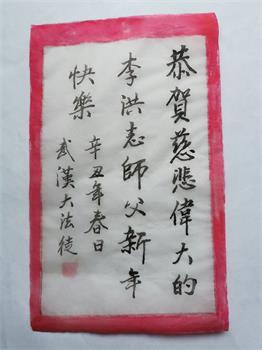 恭賀慈悲偉大的
李洪志師父新年
快樂
辛丑年春日
武漢大法徒